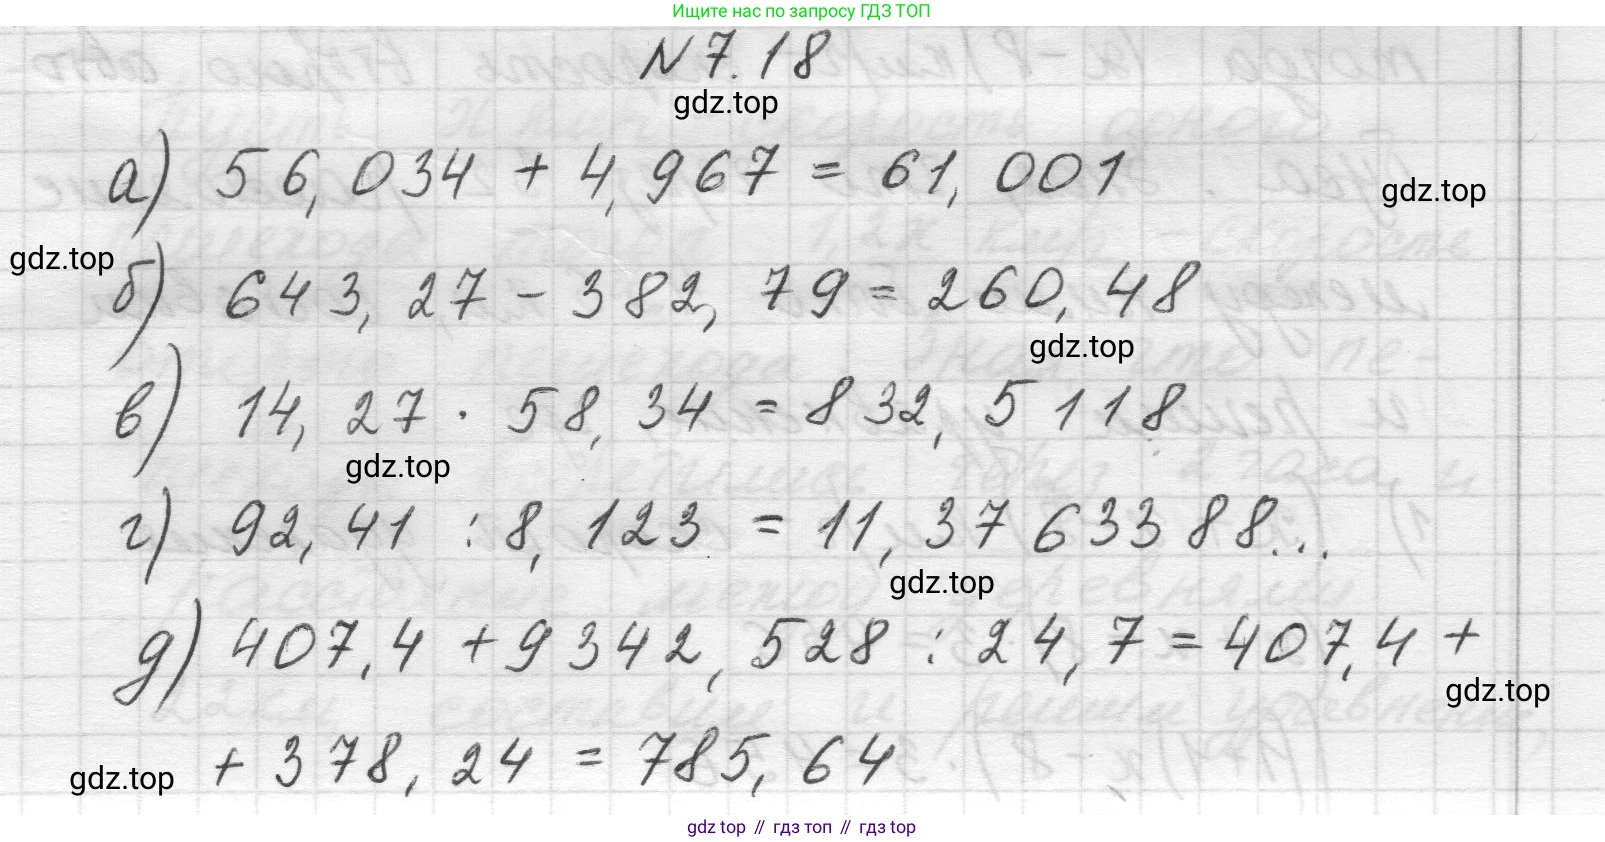 Ищите нас по запросу ГДЗ ТОП
N 7.18
gdz.top
а) 56,034 + 4,967 = 61,001
gdz.top
gdz.top
б) 643,27 - 382,79 = 260,48
gdz.top
в) 14,27 · 58,34 = 832,5118
gdz.top
г) 92,41 : 8,123 = 11,3763388...
gdz.top
д) 407,4 + 9342,528 : 24,7 = 407,4 +
gdz.top
+ 378,24 = 785,64
gdz.top
gdz top // гдз топ // гдз top